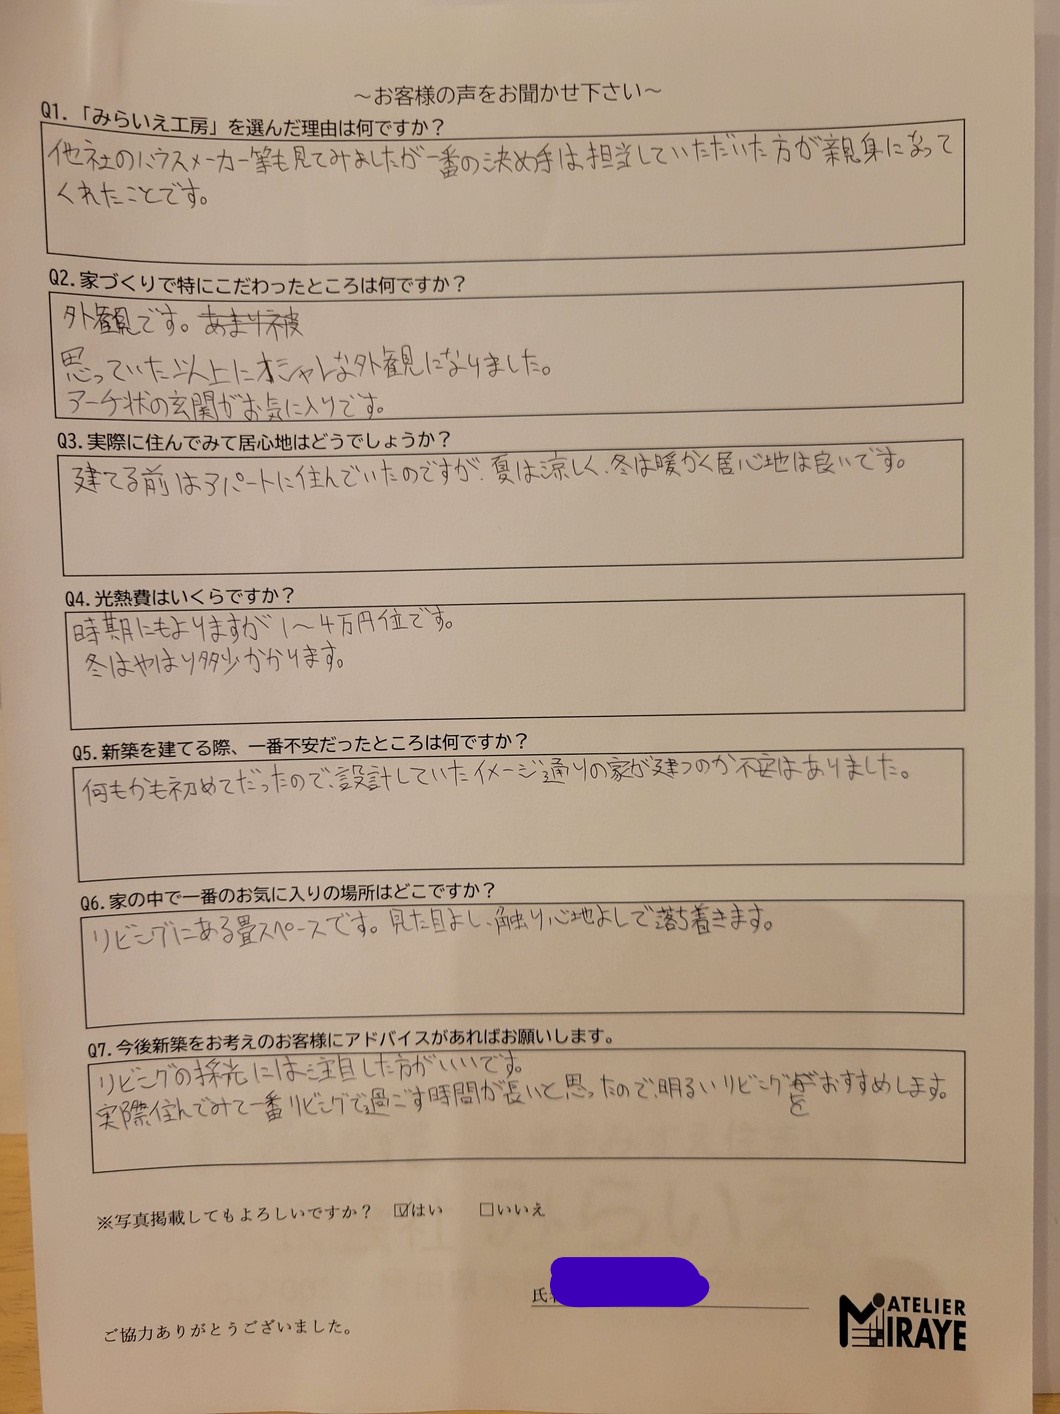 ～お客様の声をお聞かせ下さい～
Q1.「みらいえ工房」を選んだ理由は何ですか？
他社のハウスメーカー等も見てみましたが一番の決め手は、担当していただいた方が親身になって
くれたことです。
Q2.家づくりで特にこだわったところは何ですか？
外観です。あまり被
思っていた以上にオシャレな外観になりました。
アーチ状の玄関がお気に入りです。
Q3.実際に住んでみて居心地はどうでしょうか？
建てる前はアパートに住んでいたのですが、夏は涼しく、冬は暖かく居心地は良いです。
Q4.光熱費はいくらですか？
時期にもよりますが1～4万円位です。
冬はやはり多少かかります。
Q5.新築を建てる際、一番不安だったところは何ですか？
何もかも初めてだったので、設計していたイメージ通りの家が建つのか不安はありました。
Q6.家の中で一番のお気に入りの場所はどこですか？
リビングにある畳スペースです。見た目よし、触り心地よしで落ち着きます。
Q7.今後新築をお考えのお客様にアドバイスがあればお願いします。
リビングの採光には注目した方がいいです。
実際住んでみて一番リビングで過ごす時間が長いと思ったので、明るいリビングがおすすめします。
を
※写真掲載してもよろしいですか？ ☑はい □いいえ
氏
ご協力ありがとうございました。
ATELIER
MIRAYE